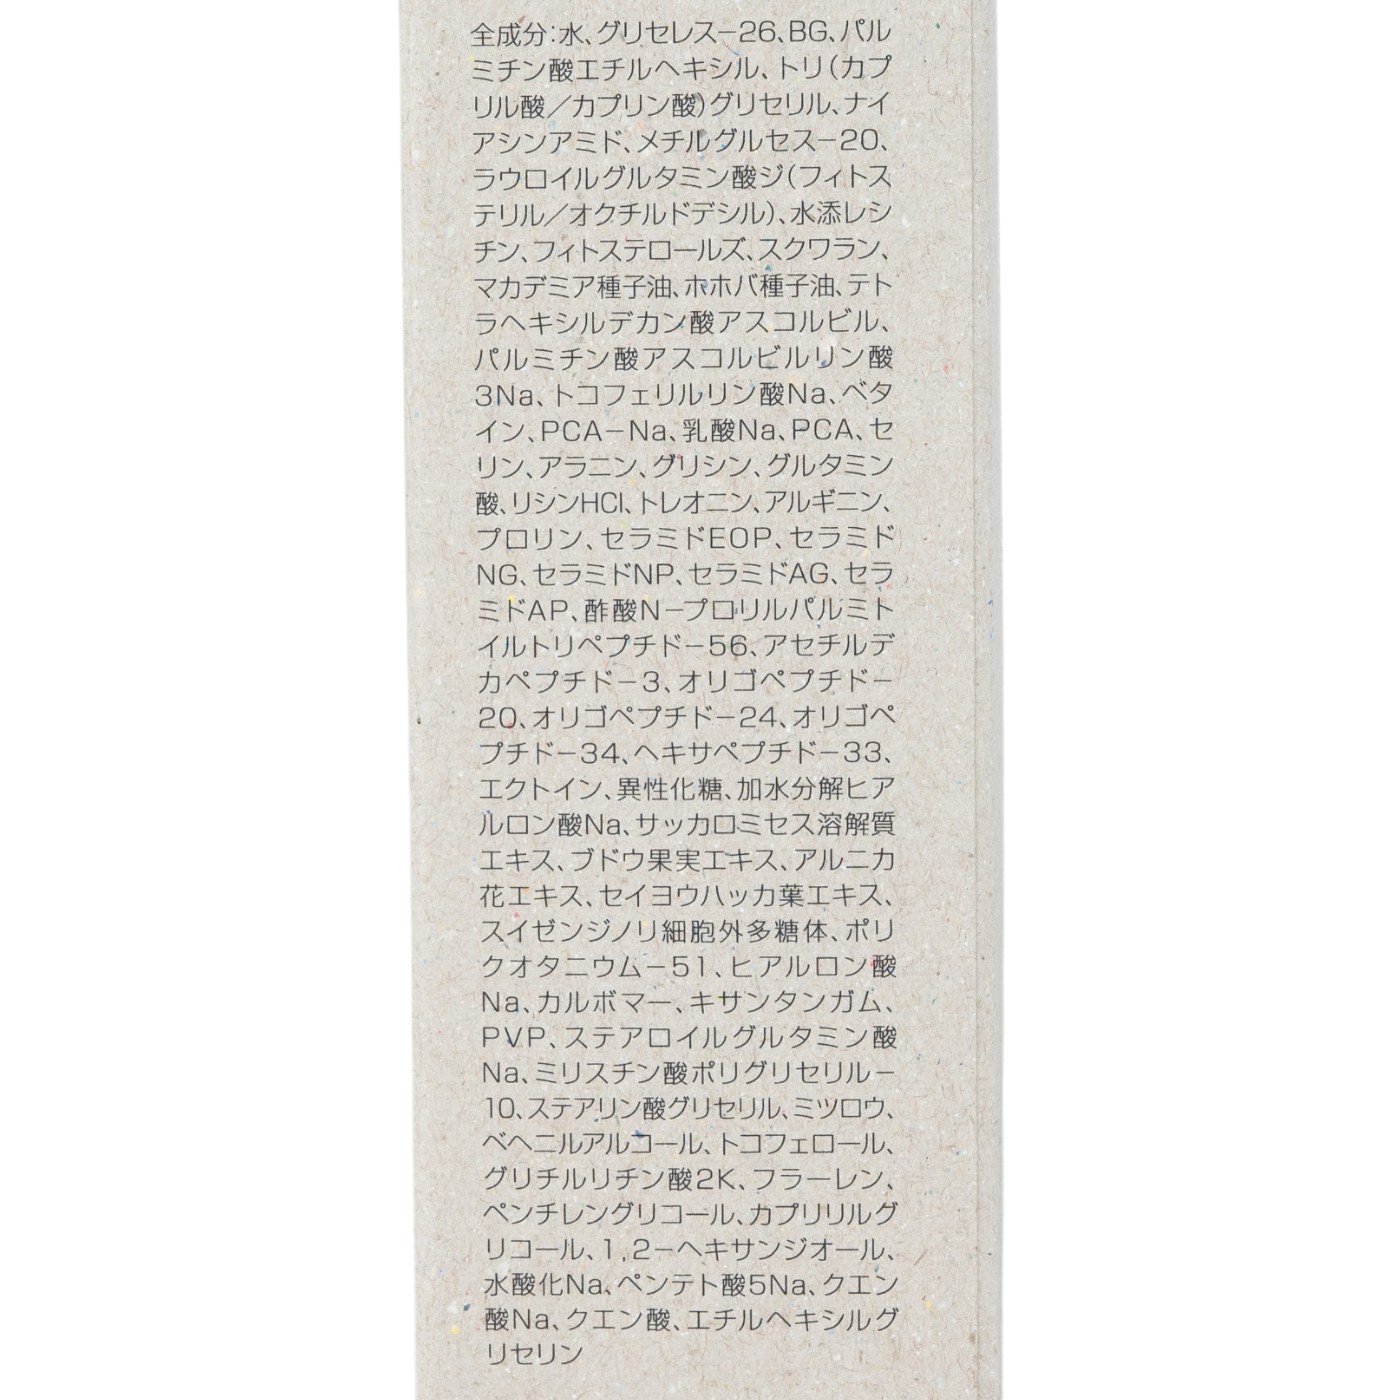 全成分:水、グリセレス−26、BG、パル
ミチン酸エチルヘキシル、トリ(カプ
リル酸／カプリン酸)グリセリル、ナイ
アシンアミド、メチルグルセス−20、
ラウロイルグルタミン酸ジ(フィトス
テリル／オクチルドデシル)、水添レシ
チン、フィトステロールズ、スクワラン、
マカデミア種子油、ホホバ種子油、テト
ラヘキシルデカン酸アスコルビル、
パルミチン酸アスコルビルリン酸
3Na、トコフェリルリン酸Na、ベタ
イン、PCA−Na、乳酸Na、PCA、セ
リン、アラニン、グリシン、グルタミン
酸、リシンHCl、トレオニン、アルギニン、
プロリン、セラミドEOP、セラミド
NG、セラミドNP、セラミドAG、セラ
ミドAP、酢酸N−プロリルパルミト
イルトリペプチド−56、アセチルデ
カペプチド−3、オリゴペプチド−
20、オリゴペプチド−24、オリゴペ
プチド−34、ヘキサペプチド−33、
エクトイン、異性化糖、加水分解ヒア
ルロン酸Na、サッカロミセス溶解質
エキス、ブドウ果実エキス、アルニカ
花エキス、セイヨウハッカ葉エキス、
スイゼンジノリ細胞外多糖体、ポリ
クオタニウム−51、ヒアルロン酸
Na、カルボマー、キサンタンガム、
PVP、ステアロイルグルタミン酸
Na、ミリスチン酸ポリグリセリル−
10、ステアリン酸グリセリル、ミツロウ、
ベヘニルアルコール、トコフェロール、
グリチルリチン酸2K、フラーレン、
ペンチレングリコール、カプリリルグ
リコール、1,2−ヘキサンジオール、
水酸化Na、ペンテト酸5Na、クエン
酸Na、クエン酸、エチルヘキシルグ
リセリン